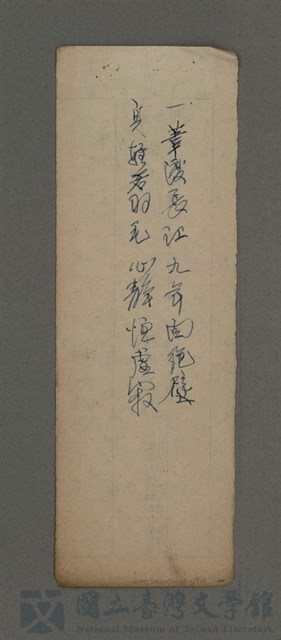 一葦渡長江 九年面絕壁
身輕若羽毛 心靜恒虛寂
國立臺灣文學館
National Museum of Taiwan Literature